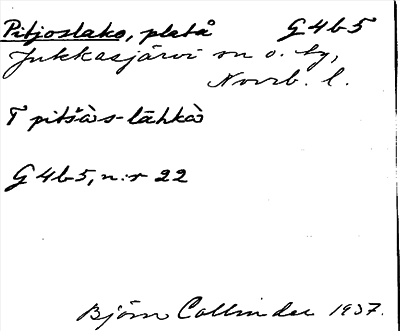 Pitjoslako, platå G4b5
Jukkasjärvi sn o. tg,
Norrb. l.
T pitšàs-lāhkà
G4b5, n:r 22
Björn Collinder 1937.